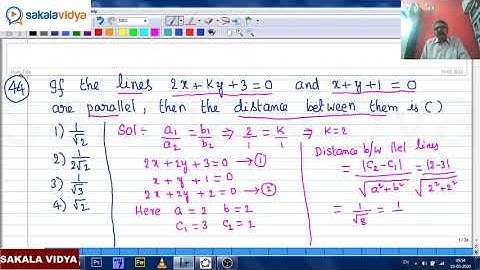 sakalavidya
44 If the lines 2x+ky+3=0 and x+y+1=0
are parallel, then the distance between them is ( )
1) 1/√2
2) 1/2√2
3) 1/√3
4) √2
Sol:- a₁/a₂ = b₁/b₂ ⇒ 2/1 = K/1 ⇒ K=2
2x+2y+3=0 → ①
x+y+1=0
2x+2y+2=0 → ②
Here a=2 b=2
C₁=3 C₂=2
Distance b/w llel lines
= |C₂-C₁|/√a²+b² = |2-3|/√2²+2²
= 1/√8 = 1
SAKALA VIDYA